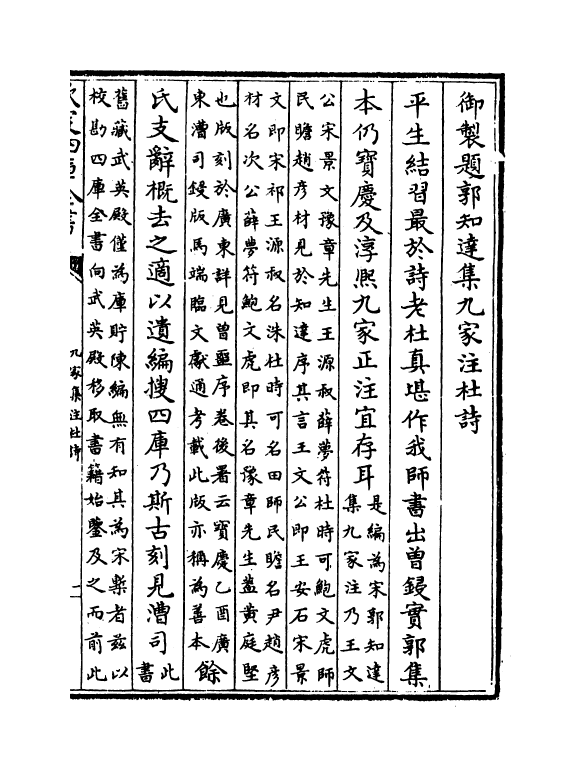 御製題郭知達集九家注杜詩
平生結習最於詩老杜真堪作我師書出曾鋟實郭集
本仍寶慶及淳熙九家正注宜存耳是編為宋郭知達
集九家注乃王文
公宋景文豫章先生王源叔薛夢符杜時可鮑文虎師
民瞻趙彥材見於知達序其言王文公即王安石宋景
文即宋祁王源叔名洙杜時可名田師民瞻名尹趙彥
材名次公薛夢符鮑文虎即其名豫章先生蓋黄庭堅
也版刻於廣東詳見曾噩序卷後署云寶慶乙酉廣
東漕司鋟版馬端臨文獻通考載此版亦稱為善本餘
氏支辭概去之適以遺編搜四庫乃斯古刻見漕司此
書
舊藏武英殿僅為庫貯陳編無有知其為宋槧者兹以
校勘四庫全書向武英殿移取書籍始鑒及之而前此
九家集注杜詩